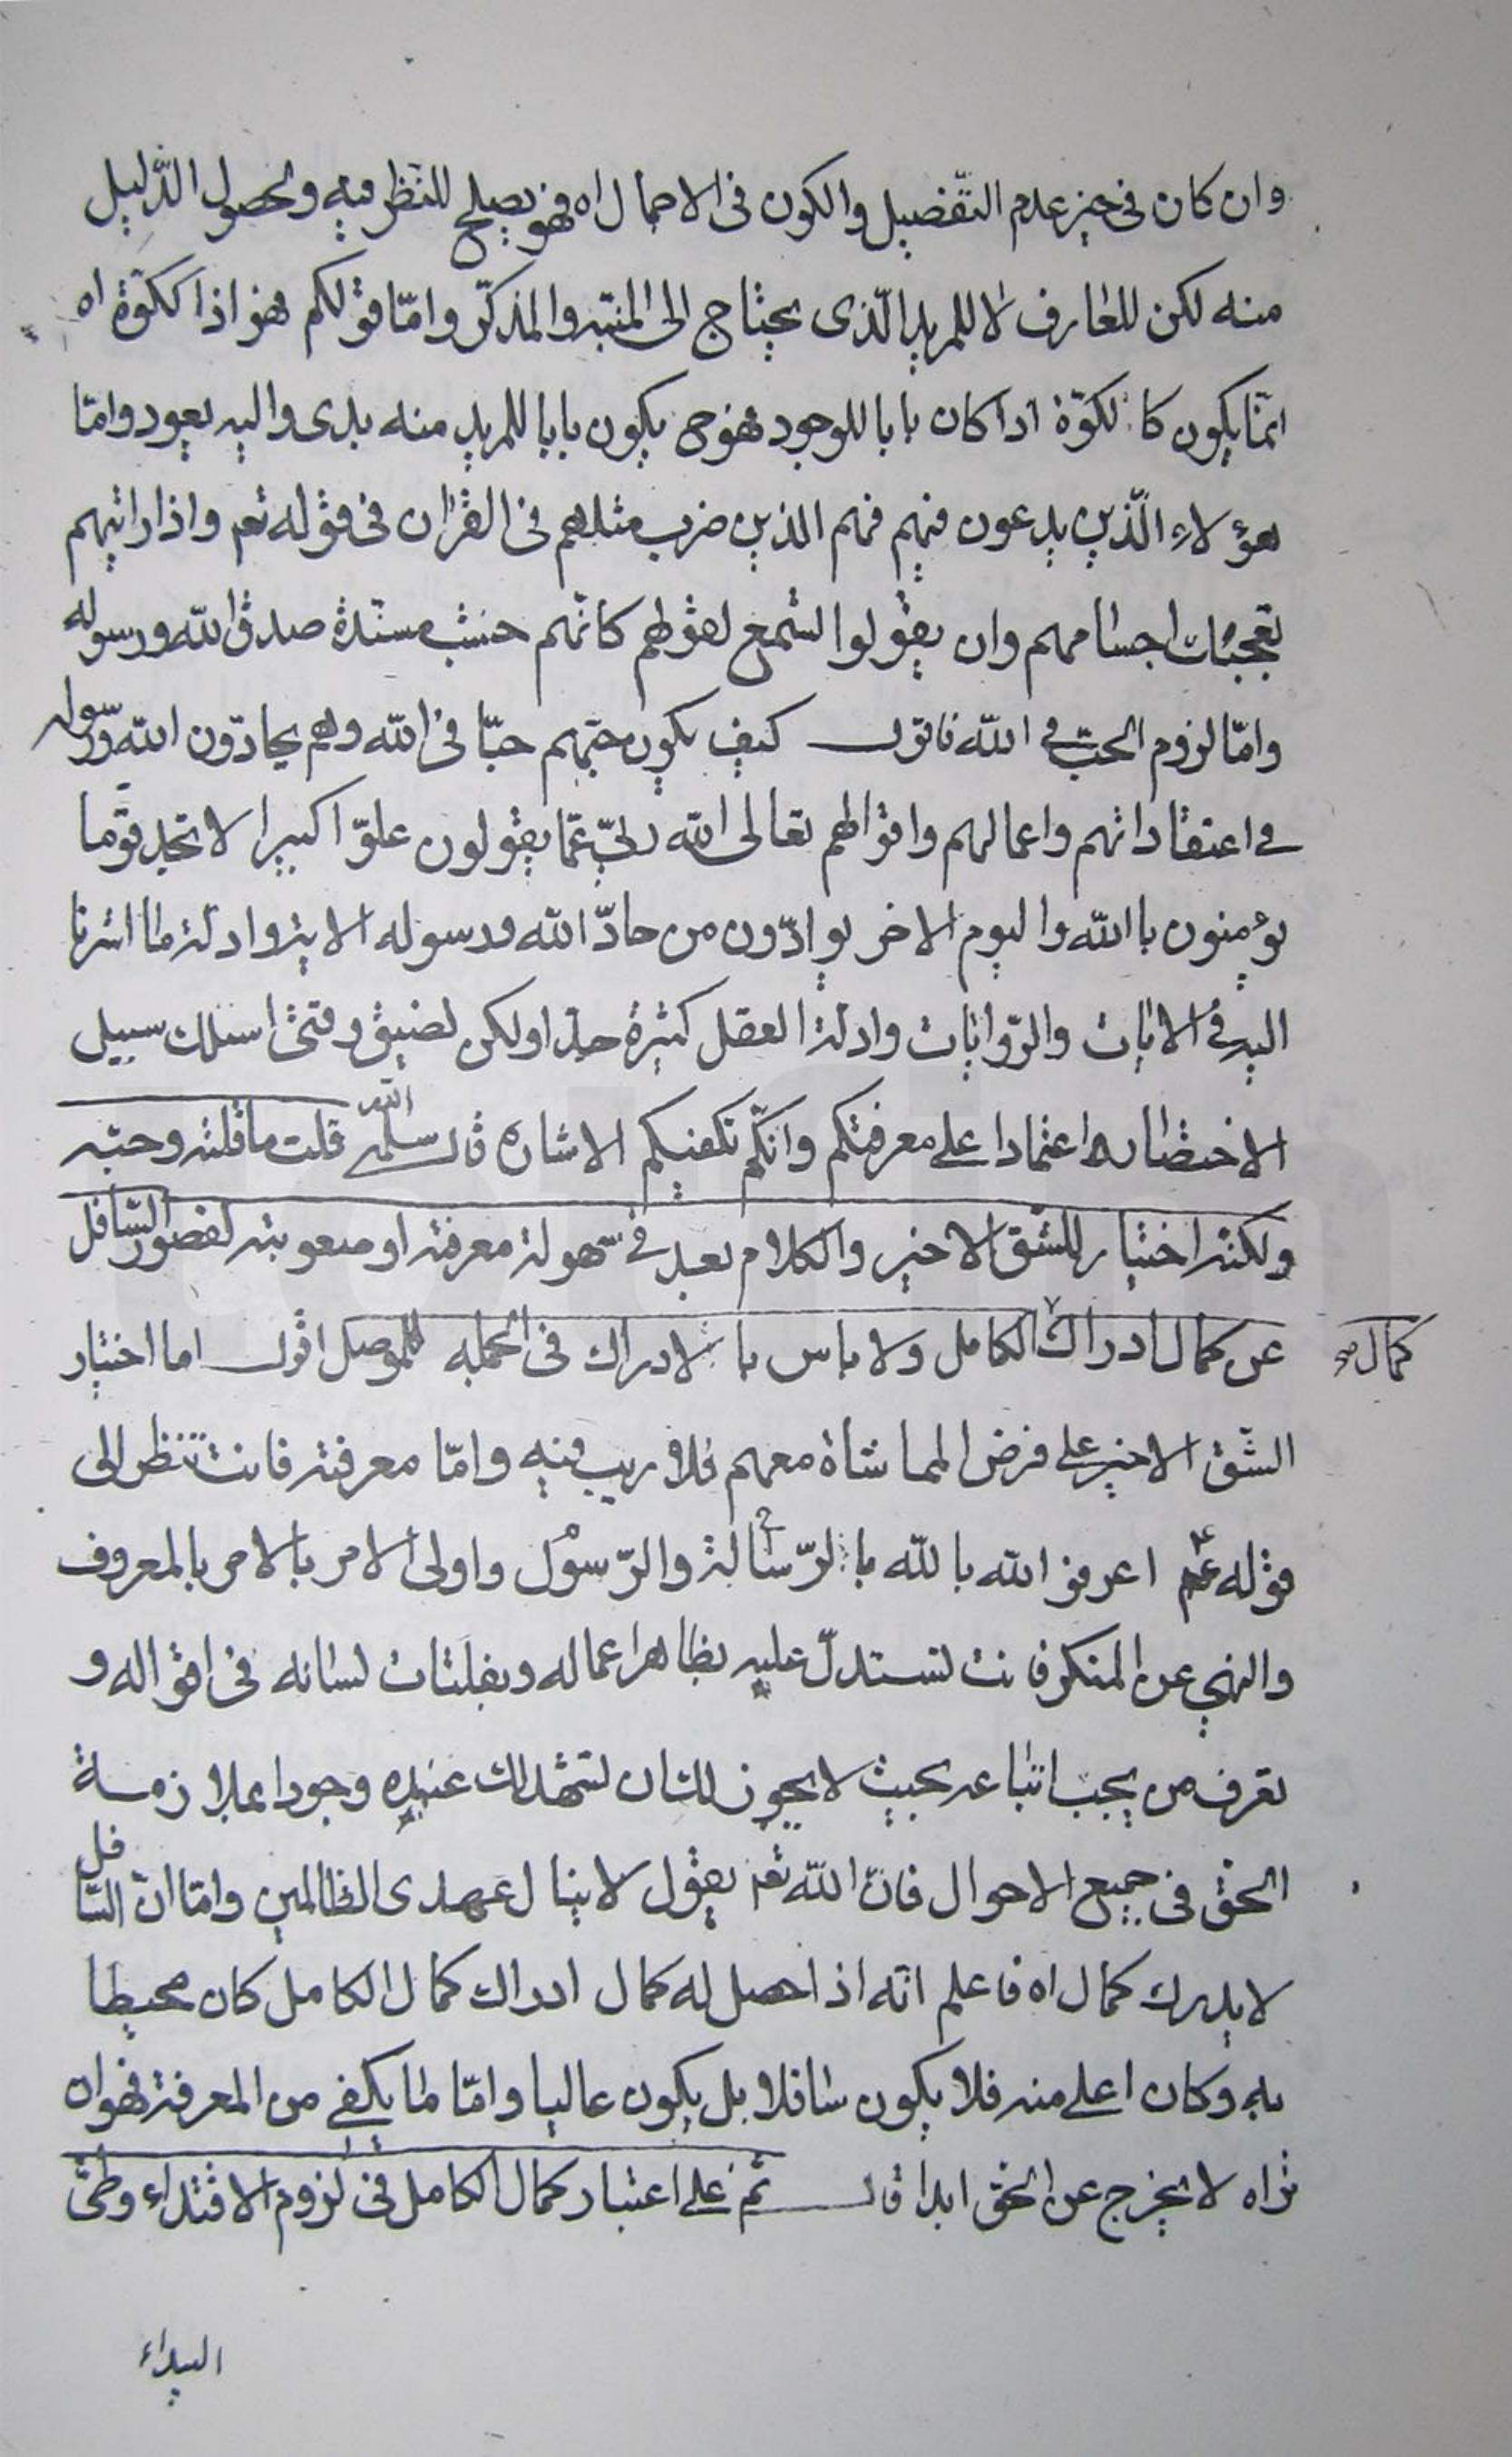 وان كان فى حيز عدم التّفضيل والكون فى الاجمال اه فهو يصلح للنّظر فيه ولحصول الدّليل
منه لكن للعارف لا للمريد الّذى يحتاج الى المنبّه والمذكّر وامّا قولكم هو اذا كالكوّة اه
انّما يكون كالكوّة اذا كان بابا للوجود فهو ح يكون بابا للمريد منه بدى واليه يعود وامّا
هؤلاء الّذين يدعون فيهم فهم الذين ضرب مثلهم فى القران فى قوله تعم واذا رايتهم
تعجبك اجسامهم وان يقولوا تسمع لقولهم كانّهم خشب مسنّدة صدق الله ورسوله
وامّا لزوم الحبّ فى الله فاقول كيف يكون حبّهم حبّا فى الله وهم يحادّون الله ورسوله
فى اعتقاداتهم واعمالهم واقوالهم تعالى الله ربّى عمّا يقولون علوّا كبيرا لا تجد قوما
يؤمنون باالله واليوم الاخر يوادّون من حادّ الله ورسوله الاية وادلّة ما اشرنا
اليه فى الايات والرّوايات وادلّة العقل كثيرة جدا ولكن لضيق وقتى اسلك سبيل
الاختصار اعتمادا على معرفتكم وانّكم تكفيكم الاشارة قال سلّمه الله قلت ما قلته وحبّه
ولكنّه اختيار للشّق الاخير والكلام بعد فى سهولة معرفته او صعوبته لقصور السّافل
عن كمال ادراك الكامل ولا باس بالادراك فى الجملة للموصل اقول اما اختيار
كمال
الشّق الاخير على فرض المماشاة معهم فلا ريب فيه وامّا معرفته فانت تنظر الى
قوله عم اعرفوا الله بالله بالرّسالة والرّسول واولى الامر بالامر بالمعروف
والنهى عن المنكر فانت تستدلّ عليه بظاهر اعماله وبفلتات لسانه فى اقواله و
تعرف من يجب اتباعه بحيث لا يجوز لك ان تشهد لك عنده وجودا بملازمة
الحق فى جميع الاحوال فانّ الله تعم يقول لا ينال عهدى الظالمين وامّا انّ السّافل
لا يدرك كمال اه فاعلم انّه اذا حصل له كمال ادراك كمال الكامل كان محيطا
به وكان اعلى منه فلا يكون سافلا بل يكون عاليا وامّا ما يكفى من المعرفة فهو ان
تراه لا يخرج عن الحق ابدا قال ثم على اعتبار كمال الكامل فى لزوم الاقتداء وطىّ
البيداء